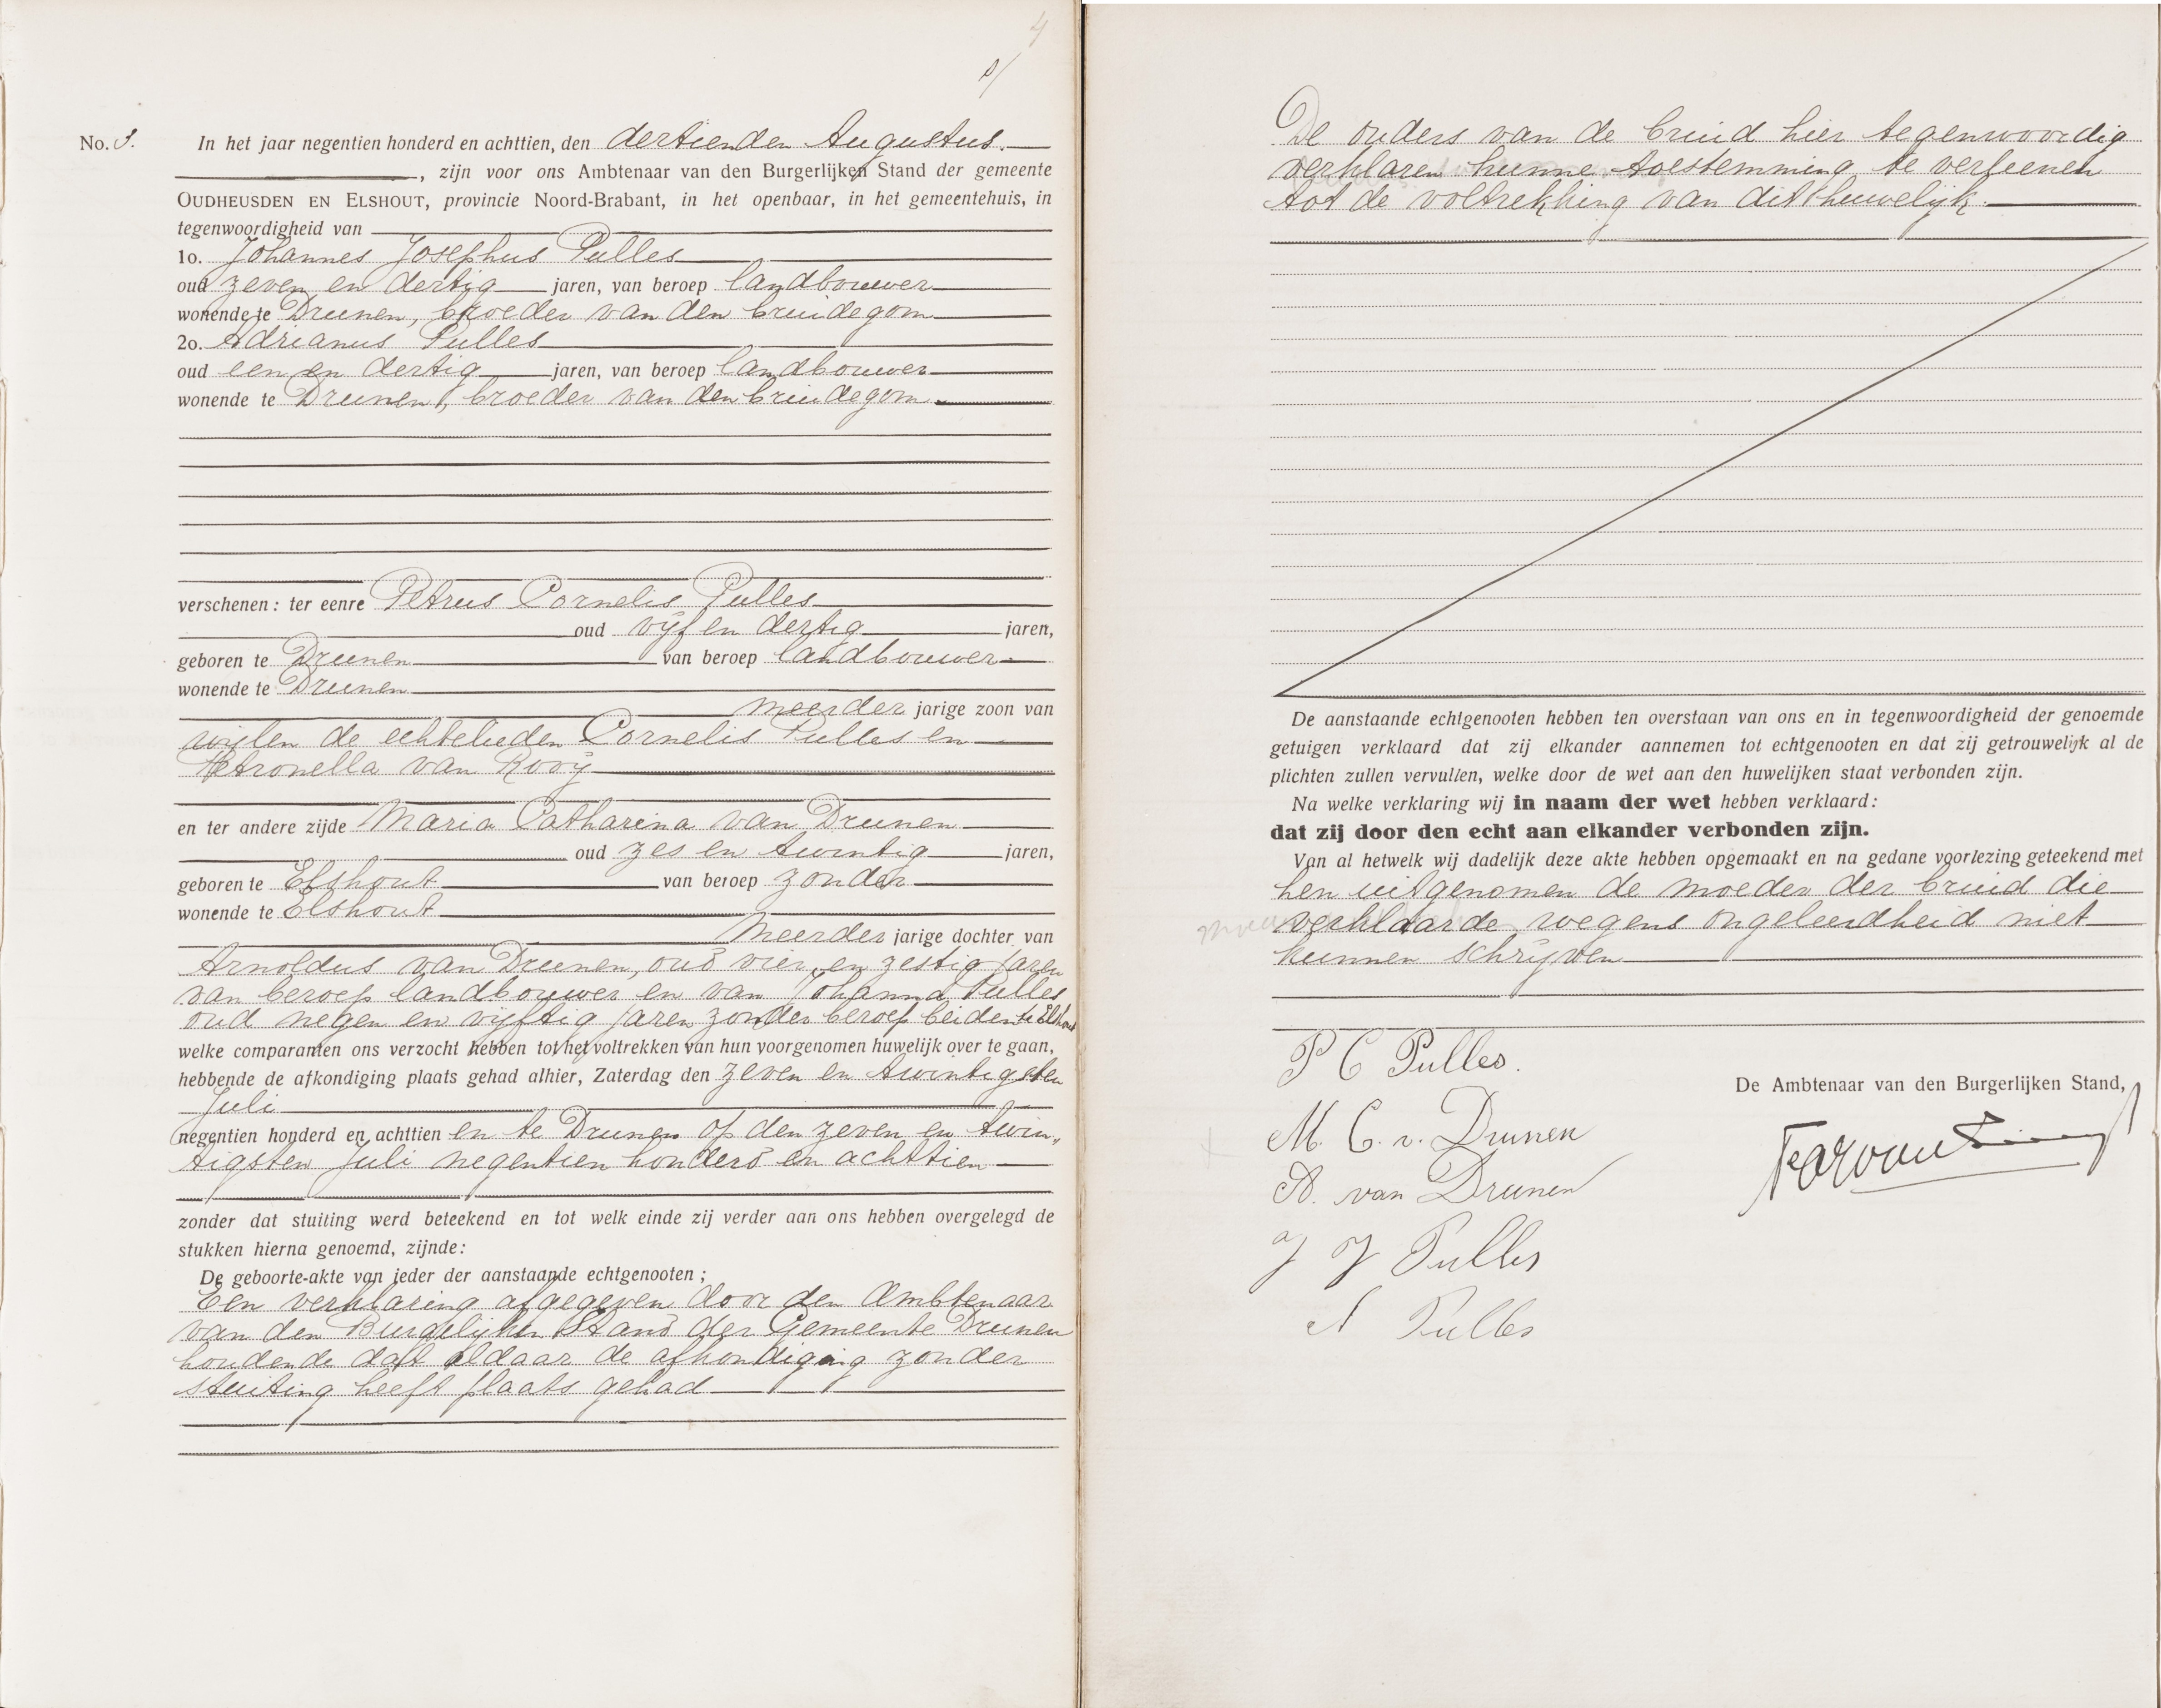 4
No. 3. In het jaar negentien honderd en achttien, den dertienden Augustus.
, zijn voor ons Ambtenaar van den Burgerlijken Stand der gemeente
OUDHEUSDEN EN ELSHOUT, provincie Noord-Brabant, in het openbaar, in het gemeentehuis, in
tegenwoordigheid van
1o. Johannes Josephus Pulles
oud zeven en dertig jaren, van beroep landbouwer
wonende te Drunen, broeder van den bruidegom
2o. Adrianus Pulles
oud een en dertig jaren, van beroep landbouwer
wonende te Drunen, broeder van den bruidegom
verschenen: ter eenre Petrus Cornelis Pulles
oud vijf en dertig jaren,
geboren te Drunen van beroep landbouwer
wonende te Drunen
meerder jarige zoon van
wijlen de echtelieden Cornelis Pulles en
Petronella van Rooij
en ter andere zijde Maria Catharina van Drunen
oud zes en twintig jaren,
geboren te Elshout van beroep zonder
wonende te Elshout
meerder jarige dochter van
Arnoldus van Drunen, oud vier en zestig jaren
van beroep landbouwer en van Johanna Pulles
oud negen en vijftig jaren zonder beroep beiden te Elshout
welke comparanten ons verzocht hebben tot het voltrekken van hun voorgenomen huwelijk over te gaan,
hebbende de afkondiging plaats gehad alhier, Zaterdag den zeven en twintigsten
Juli
negentien honderd en achttien en te Drunen op den zeven en twin„
tigsten Juli negentien honderd en achttien
zonder dat stuiting werd beteekend en tot welk einde zij verder aan ons hebben overgelegd de
stukken hierna genoemd, zijnde:
De geboorte-akte van ieder der aanstaande echtgenooten;
Een verklaring afgegeven door den Ambtenaar
van den Burgelijken Stand der Gemeente Drunen
houdende dat aldaar de afkondiging zonder
stuiting heeft plaats gehad
De ouders van de bruid hier tegenwoordig
verklaren hunne toestemming te verleenen
tot de voltrekking van dit huwelijk.
De aanstaande echtgenooten hebben ten overstaan van ons en in tegenwoordigheid der genoemde
getuigen verklaard dat zij elkander aannemen tot echtgenooten en dat zij getrouwelijk al de
plichten zullen vervullen, welke door de wet aan den huwelijken staat verbonden zijn.
Na welke verklaring wij in naam der wet hebben verklaard:
dat zij door den echt aan elkander verbonden zijn.
Van al hetwelk wij dadelijk deze akte hebben opgemaakt en na gedane voorlezing geteekend met
hen uitgenomen de moeder der bruid die
verklaarde wegens ongeleerdheid niet
kunnen schrijven
P C Pulles.
De Ambtenaar van den Burgerlijken Stand,
M. C. v. Drunen
A. van Drunen
J J Pulles
A Pulles